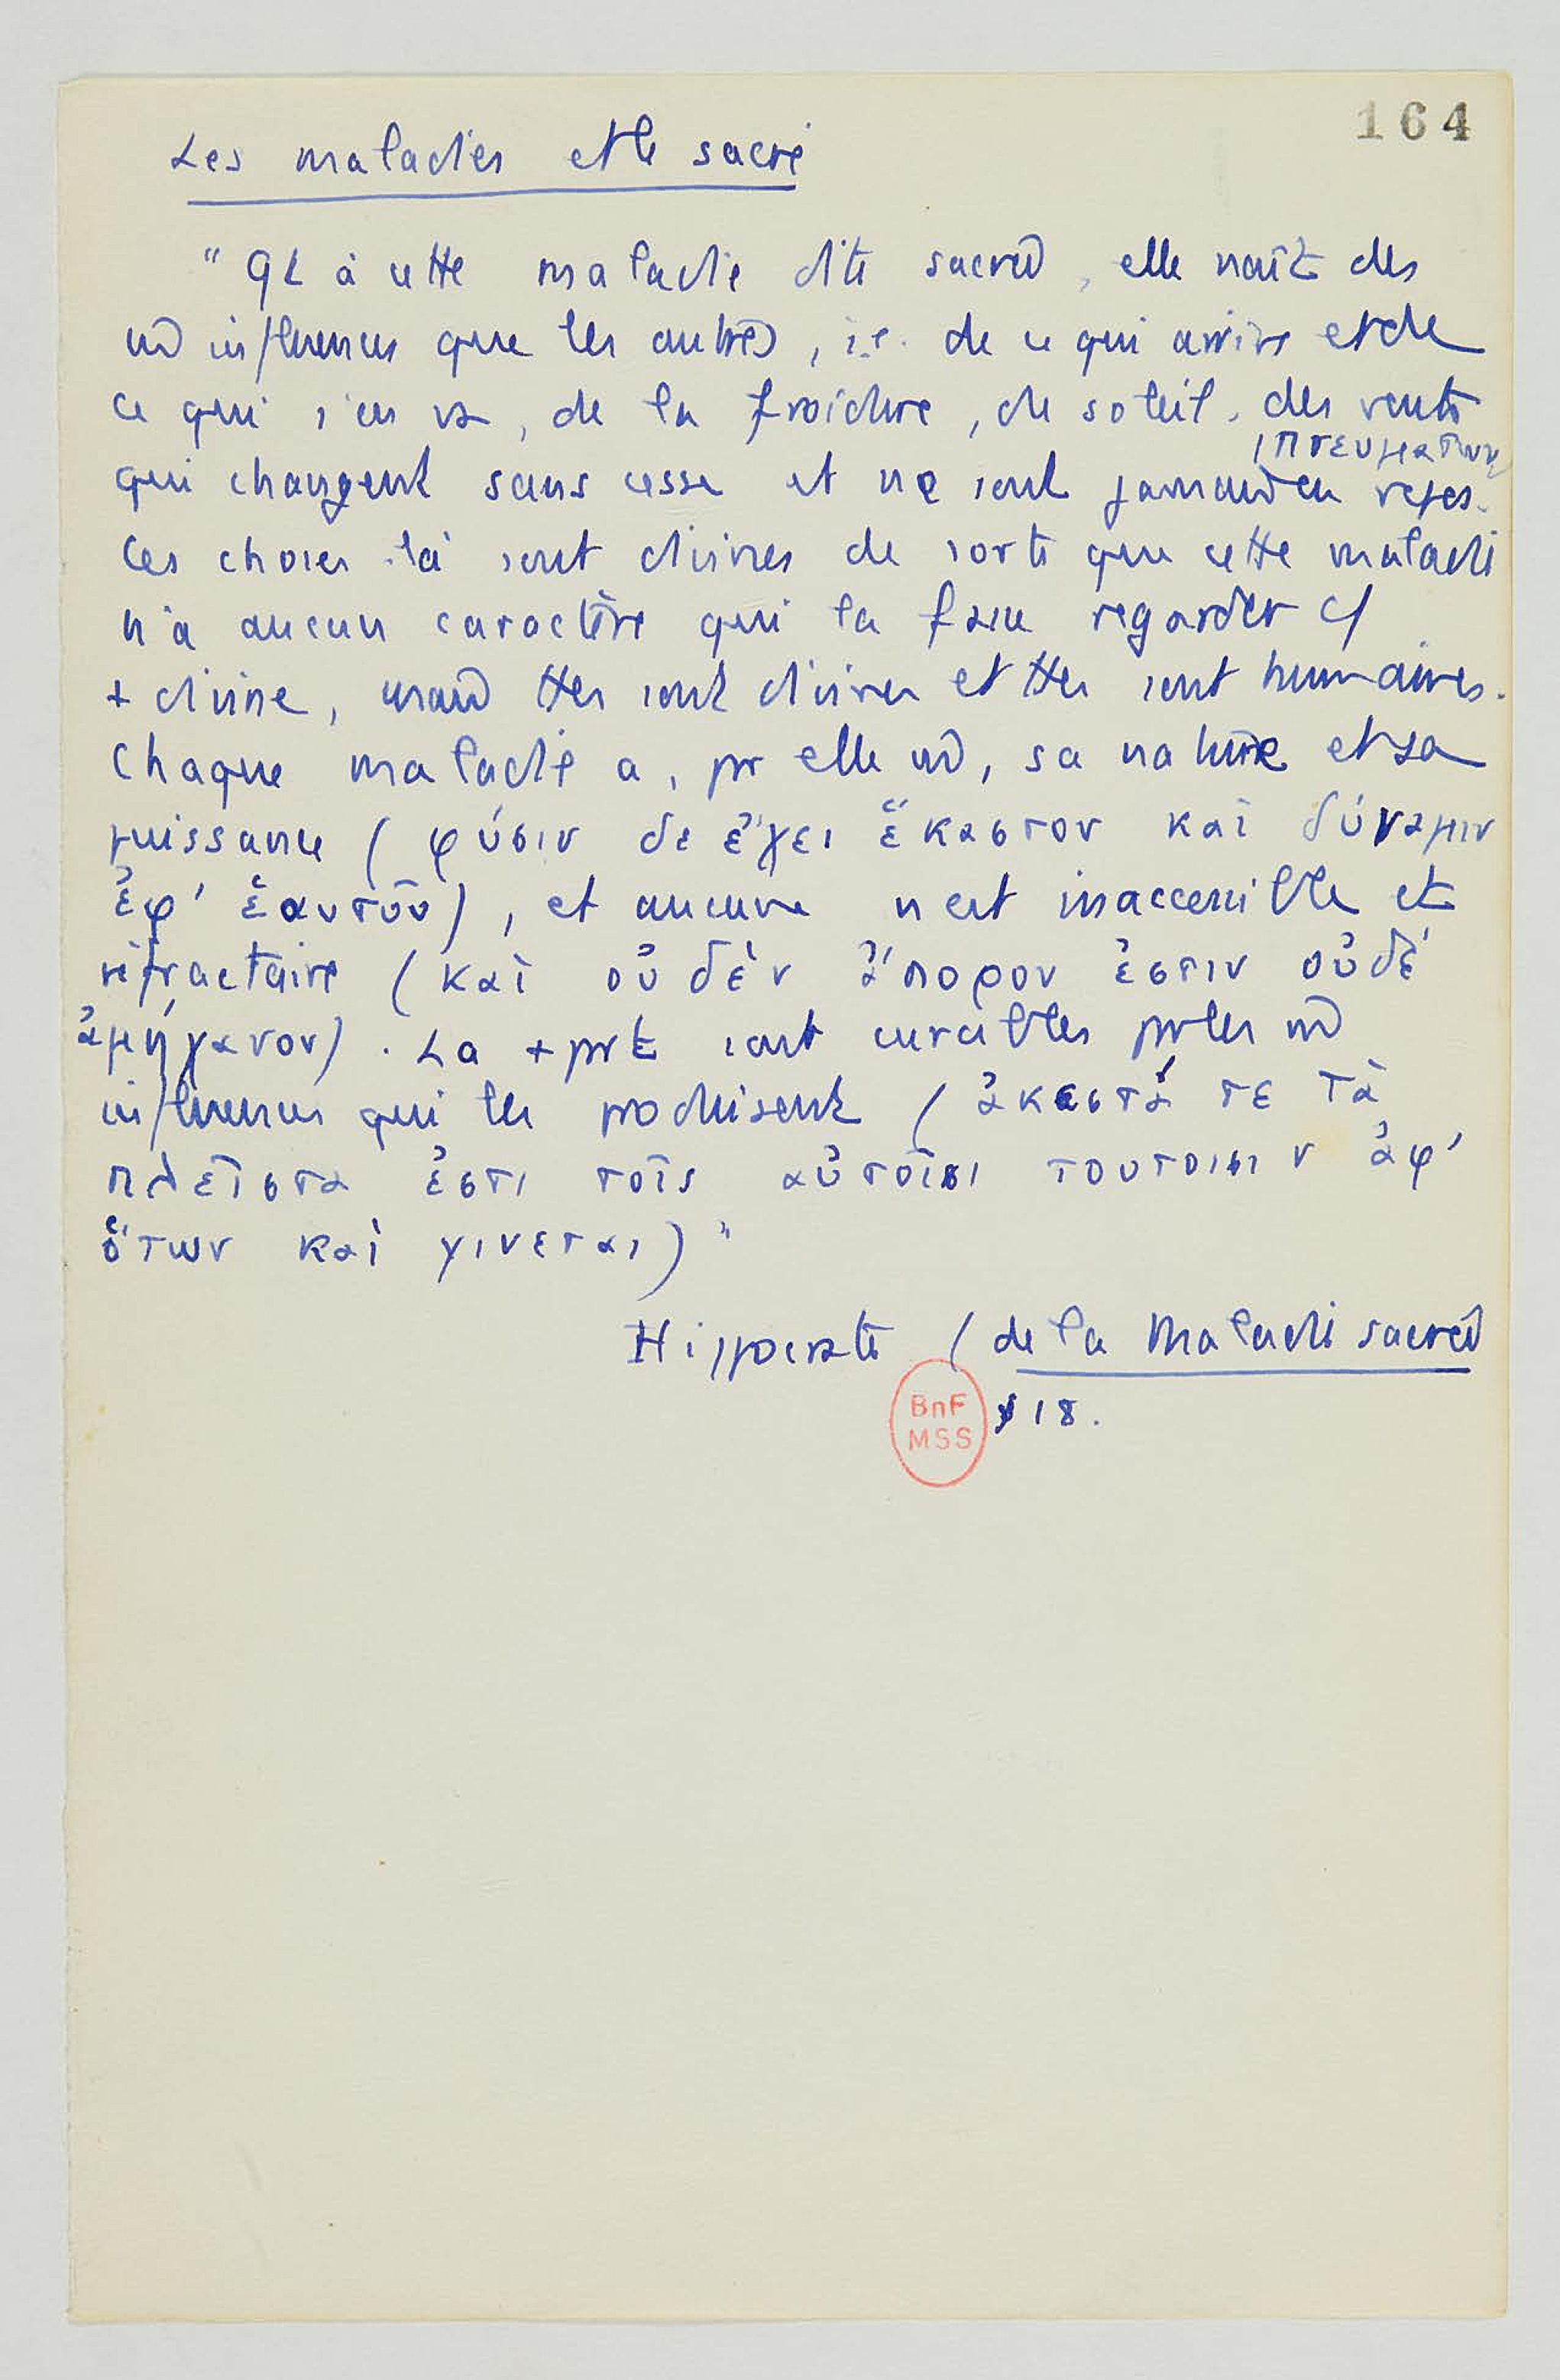 164
Les maladies et le sacré
" Qt à cette maladie dite sacrée, elle naît des
m̂ influences que les autres, i.e. de ce qui arrive et de
ce qui s'en va, de la froidure, du soleil, des vents
(πνευματων)
qui changent sans cesse et ne sont jamais en repos.
Ces choses-là sont divines de sorte que cette maladie
n'a aucun caractère qui la fasse regarder c/
+ divine, mais ttes sont divines et ttes sont humaines.
Chaque maladie a, pr elle m̂, sa nature et sa
puissance ( φύσιν δε ἔχει ἕκαστον καὶ δύναμιν
ἐφ' ἑαυτοῦ), et aucune n'est inaccessible et
réfractaire (καὶ οὐδὲν ἄπορον ἐστιν οὐδέ
ἀμήχανον). La + prt sont curables pr les m̂
influences qui les produisent (ἀκεστά τε τὰ
πλεῖστα ἐστι τοῖς αὐτοῖσι τουτοισιν ἀφ'
ὅτων καὶ γινεται) "
Hippocrate (de la Maladie sacrée
§ 18.
BnF
MSS